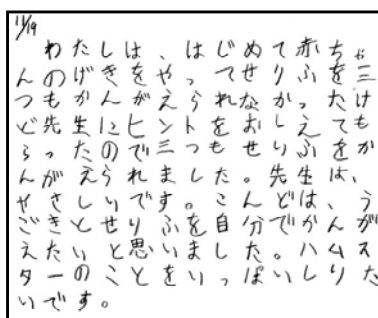 11/19
わたしは、はじめて赤ちゃ
んのげきをやってせりふを三
つもかんがえられなかったけ
ど先生にヒントをおしえても
らったので三つもせりふをか
んがえられました。先生は、
やさしいです。こんどは、う
ごきとせりふを自分でかんが
えたいと思いました。ハムス
ターのことをいっぱいしりた
いです。